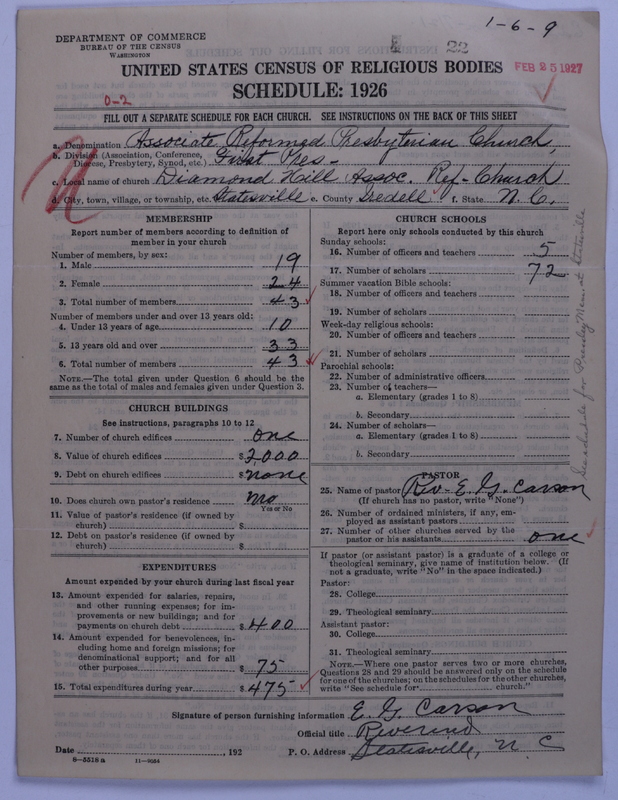 1-6-9
DEPARTMENT OF COMMERCE
BUREAU OF THE CENSUS
WASHINGTON
22
UNITED STATES CENSUS OF RELIGIOUS BODIES
FEB 25 1927
SCHEDULE: 1926
0-2
FILL OUT A SEPARATE SCHEDULE FOR EACH CHURCH. SEE INSTRUCTIONS ON THE BACK OF THIS SHEET
a. Denomination Associate Reformed Presbyterian Church,
b. Division (Association, Conference, Diocese, Presbytery, Synod, etc.) First Pres-
c. Local name of church Diamond Hill Assoc. Ref- Church
d. City, town, village, or township, etc. Statesville e. County Iredell f. State N. C.
MEMBERSHIP
Report number of members according to definition of
member in your church
Number of members, by sex:
1. Male 19
2. Female 24
3. Total number of members 43
Number of members under and over 13 years old:
4. Under 13 years of age 10
5. 13 years old and over 33
6. Total number of members 43
NOTE.—The total given under Question 6 should be the
same as the total of males and females given under Question 3.
CHURCH BUILDINGS
See instructions, paragraphs 10 to 12
7. Number of church edifices one
8. Value of church edifices $2,000
9. Debt on church edifices $none
10. Does church own pastor's residence No
Yes or No
11. Value of pastor's residence (if owned by
church) $
12. Debt on pastor's residence (if owned by
church) $
EXPENDITURES
Amount expended by your church during last fiscal year
13. Amount expended for salaries, repairs,
and other running expenses; for im-
provements or new buildings; and for
payments on church debt $400
14. Amount expended for benevolences, in-
cluding home and foreign missions; for
denominational support; and for all
other purposes $75
15. Total expenditures during year $475
CHURCH SCHOOLS
Report here only schools conducted by this church
Sunday schools:
16. Number of officers and teachers 5
17. Number of scholars 72
Summer vacation Bible schools:
18. Number of officers and teachers
19. Number of scholars
Week-day religious schools:
20. Number of officers and teachers
21. Number of scholars
Parochial schools:
22. Number of administrative officers
23. Number of teachers—
a. Elementary (grades 1 to 8)
b. Secondary
24. Number of scholars—
a. Elementary (grades 1 to 8)
b. Secondary
PASTOR
25. Name of pastor Rev- E. G. Carson
(If church has no pastor, write "None")
26. Number of ordained ministers, if any, em-
ployed as assistant pastors
27. Number of other churches served by the
pastor or his assistants one
If pastor (or assistant pastor) is a graduate of a college or
theological seminary, give name of institution below. (If
not a graduate, write "No" in the space indicated.)
Pastor:
28. College
29. Theological seminary
Assistant pastor:
30. College
31. Theological seminary
NOTE.—Where one pastor serves two or more churches,
Questions 28 and 29 should be answered only on the schedule
for one of the churches; on the schedules for the other churches,
write "See schedule for church."
See schedule for Pressley Mem. at Statesville
Signature of person furnishing information E. G. Carson
Official title Riverind
Date , 192 P. O. Address Statesville, N. C
8-5518 a 11-9054